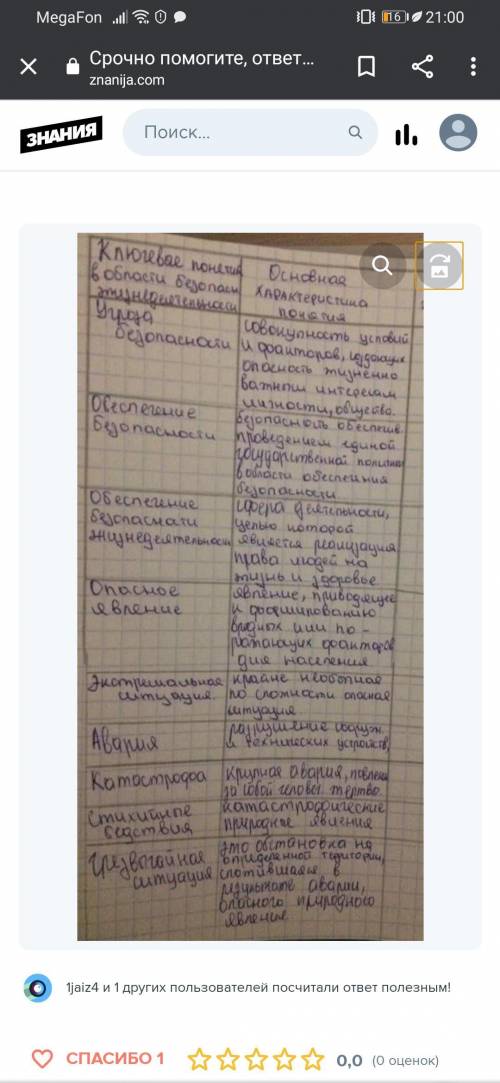 MegaFon 16 21:00
Срочно помогите, ответ...
znanija.com
ЗНАНИЯ
Поиск...
Ключевые понятия
в области безопасн
жизнедеятельности
Основная
характеристика
понятия
Угроза
безопасности
совокупность условий
и факторов, создающих
опасность жизненно
важным интересам
личности, общества.
Обеспечение
безопасности
безопасность обеспечив.
проведением единой
государственной политики
в области обеспечния
безопасности
Обеспечение
безопасности
жизнедеятельности
сфера деятельности,
целью которой
является реализация
права людей на
жизнь и здоровье
Опасное
явление
явление, приводящее
к формированию
вредных или по-
ражающих факторов
для населения
Экстремальная
ситуация.
крайне необычная
по сложности опасная
ситуация
Авария
разрушение сооруж.
и технических устройств,
Катастрофа
крупная авария, повлекш
за собой человеч. жертво.
Стихийное
бедствия
катастрофические
природные явления
Чрезвычайная
ситуация
это обстановка на
определенной территории,
сложившаяся в
результате аварии,
опасного природного
явление
1jaiz4 и 1 других пользователей посчитали ответ полезным!
СПАСИБО 1 0,0 (0 оценок)